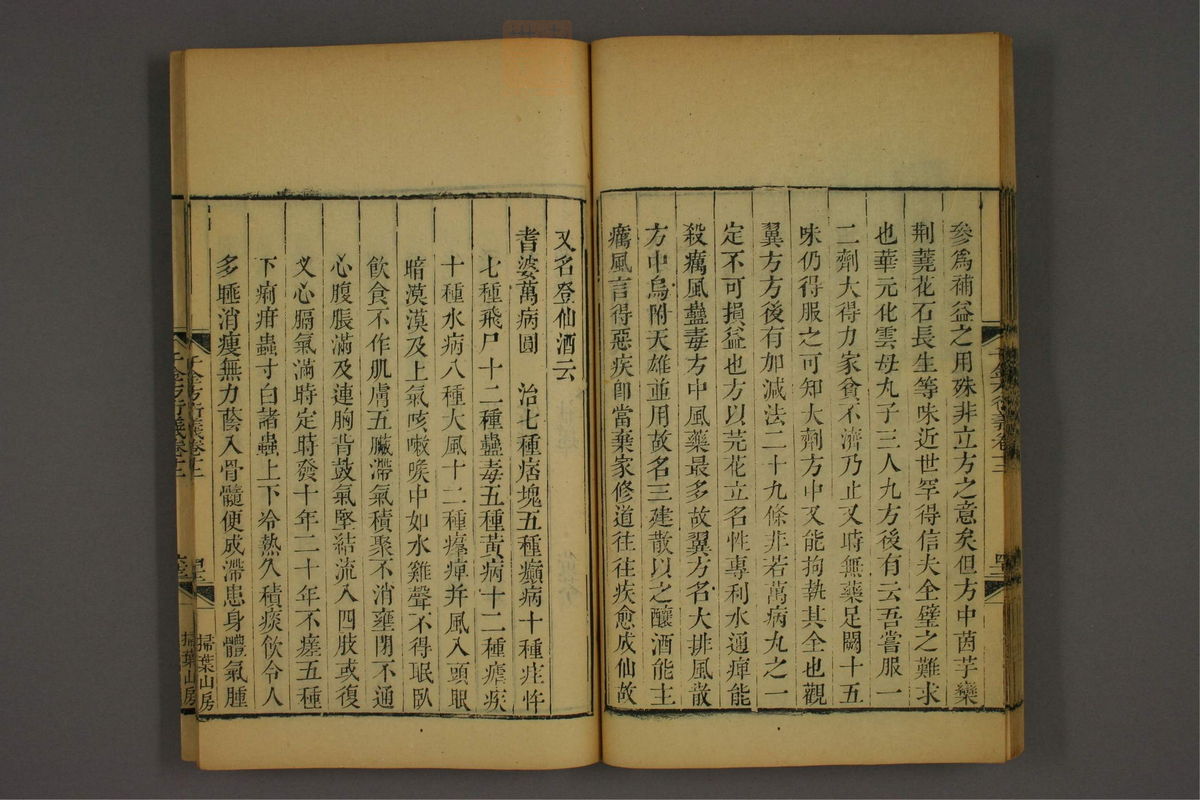 參爲補益之用殊非立方之意矣但方中茵芋藥
荆蕘花石長生等味近世罕得信夫全璧之難求
也華元化雲母丸子三人九方後有云吾嘗服一
二劑大得力家貧不濟乃止又時無藥足闕十五
味仍得服之可知大劑方中又能拘執其全也觀
翼方方後有加減法二十九條非若萬病丸之一
定不可損益也方以芫花立名性專利水通痺能
殺癘風蠱毒方中風藥最多故翼方名大排風散
方中烏附天雄並用故名三建散以之釀酒能主
癘風言得惡疾卽當棄家修道往往疾愈成仙故
又名登仙酒云
耆婆萬病圓　治七種痞塊五種癲病十種疰忤
七種飛尸十二種蠱毒五種黃病十二種瘧疾
十種水病八種大風十二種𤸷痺并風入頭眼
暗漠漠及上氣咳嗽喉中如水雞聲不得眠臥
飮食不作肌膚五臟滯氣積聚不消壅閉不通
心腹脹滿及連胸背鼓氣堅結流入四肢或復
叉心膈氣滿時定時發十年二十年不瘥五種
下痢疳蟲寸白諸蟲上下冷熱久積痰飮令人
多睡消瘦無力蔭入骨髓便成滯患身體氣腫
千金方衍義卷十二
掃葉山房